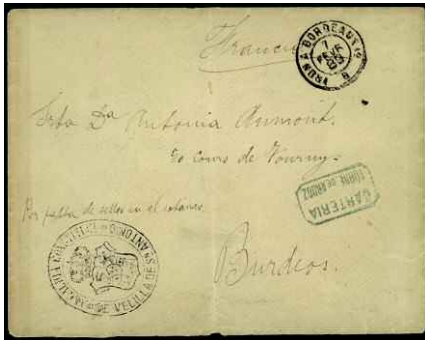 Francia
IRUN A BORDEAUX
7
FEVR
Srta Dª Antonia Aumont.
Cours de Tourny.
CARTERIA
Por falta de sellos en el estanco.
DE VELILLA DE SAN ANTONIO
Burdeos.